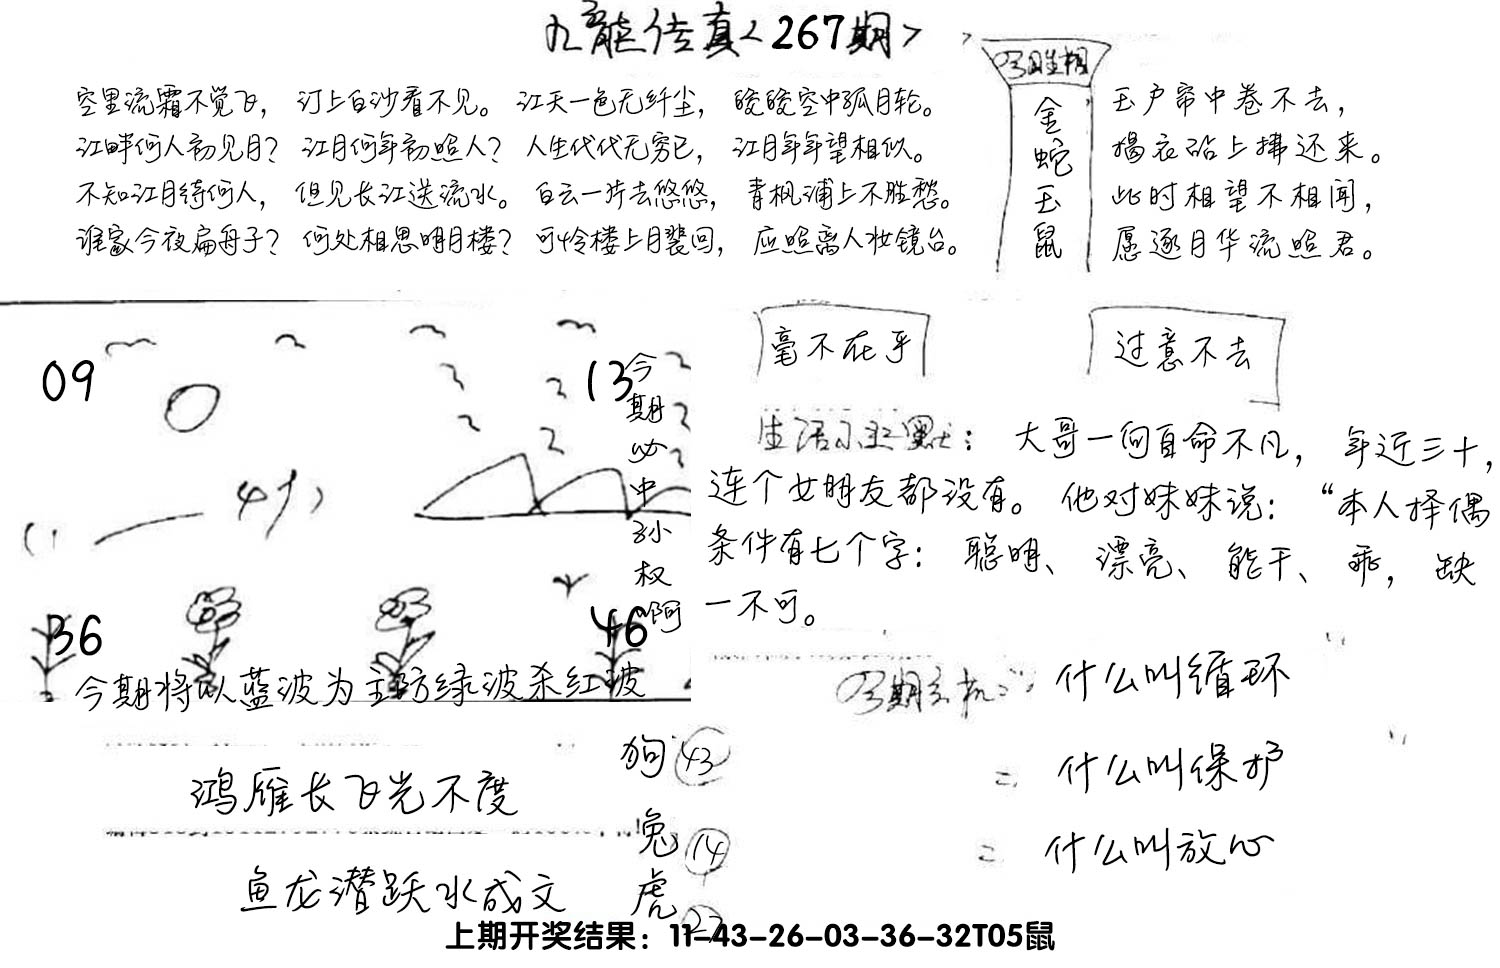 九龙传真<267期>
空里流霜不觉飞，汀上白沙看不见。江天一色无纤尘，皎皎空中孤月轮。
江畔何人初见月？江月何年初照人？人生代代无穷已，江月年年望相似。
不知江月待何人，但见长江送流水。白云一片去悠悠，青枫浦上不胜愁。
谁家今夜扁舟子？何处相思明月楼？可怜楼上月裴回，应照离人妆镜台。
金蛇玉鼠
玉户帘中卷不去，
捣衣砧上拂还来。
此时相望不相闻，
愿逐月华流照君。
09
13
36
46
今期必中孙权啊
今期将以蓝波为主防绿波杀红波
毫不在乎
过意不去
生活小幽默：大哥一向自命不凡，年近三十，
连个女朋友都没有。他对妹妹说：“本人择偶
条件有七个字：聪明、漂亮、能干、乖，缺
一不可。
什么叫循环
= 什么叫保护
= 什么叫放心
鸿雁长飞光不度
鱼龙潜跃水成文
狗 43
兔 14
虎
上期开奖结果：11-43-26-03-36-32T05鼠